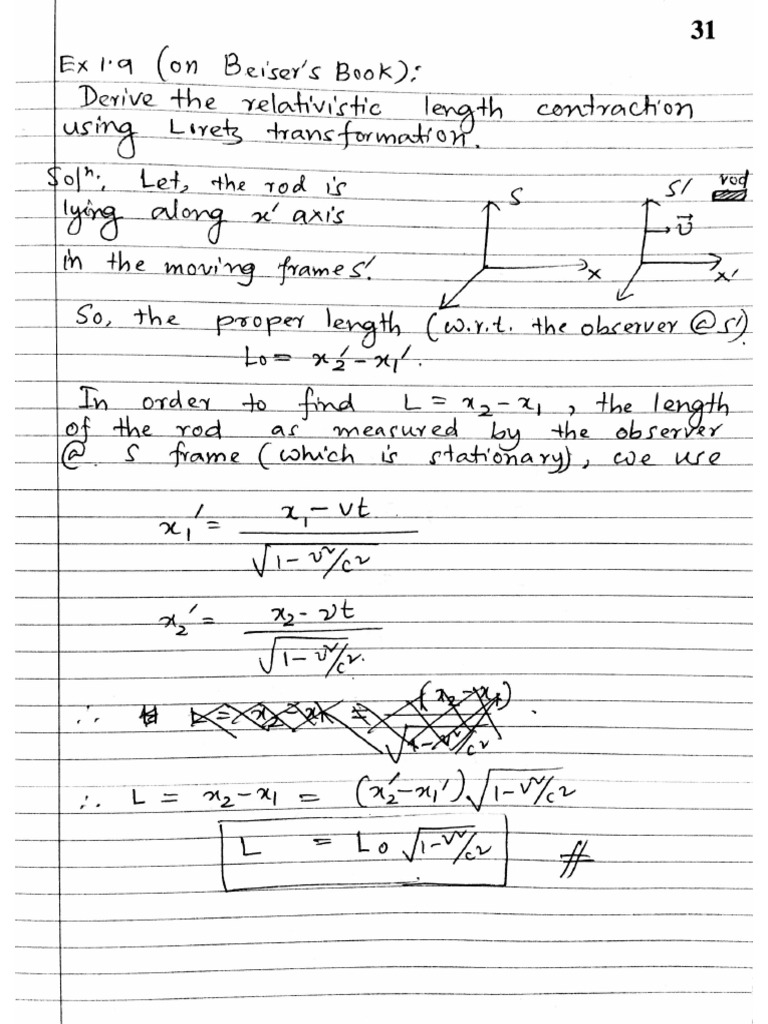 31
Ex 1.9 (on Beiser's Book):
Derive the relativistic length contraction
using Loretz transformation.
Solⁿ: Let, the rod is
lying along x' axis
in the moving frame S'.
S
x
S'
rod
v⃗
x'
So, the proper length (w.r.t. the observer @ S')
L₀ = x₂' - x₁'.
In order to find L = x₂ - x₁, the length
of the rod as measured by the observer
@ S frame (which is stationary), we use
x₁' = (x₁ - vt) / √(1 - v²/c²)
x₂' = (x₂ - vt) / √(1 - v²/c²).
∴ L = x₂ - x₁ = (x₂ - x₁) / √(1 - v²/c²) .
∴ L = x₂ - x₁ = (x₂' - x₁') √(1 - v²/c²)
L = L₀ √(1 - v²/c²) #